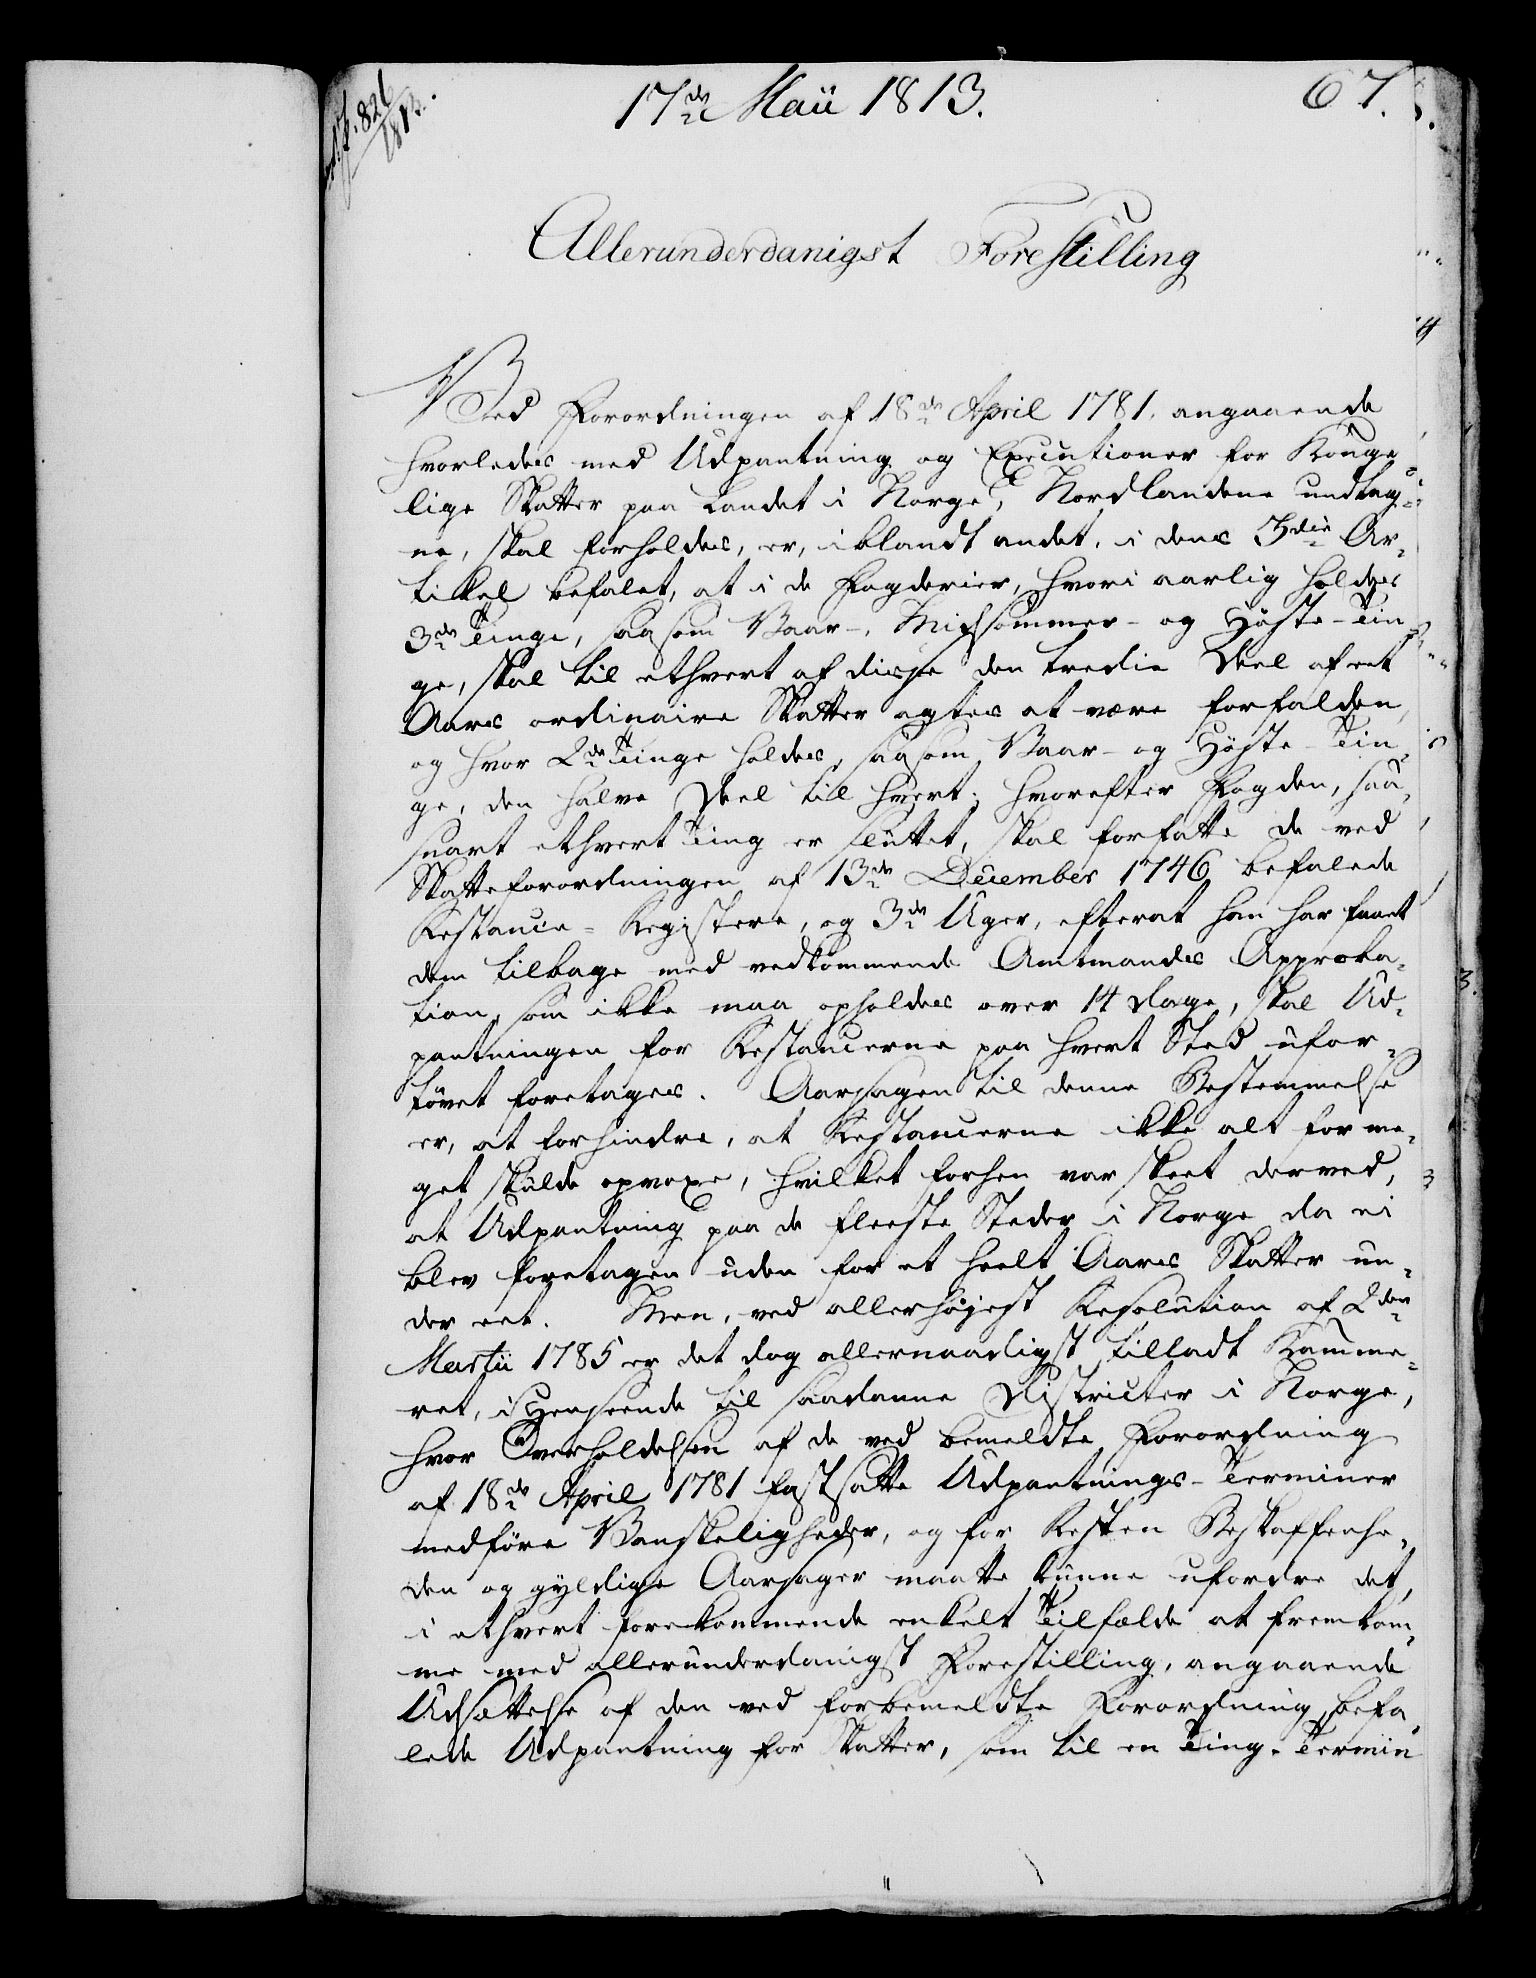 826
1813.
17de Maii 1813.
67.
Allerunderdanigst Forestilling
Ved Forordningen af 18de April 1781, angaaende
hvorledes med Udpantning og Executioner for Konge-
lige Skatter paa Landet i Norge, Nordlandene undtag-
ne, skal forholdes, er, iblandt andet, i dens 3die Ar-
tikel befalet, at i de Fogderier, hvori aarlig holdes
3de Tinge, saasom Vaar-, Midsommer- og Høste-Tin-
ge, skal til ethvert af disse den tredie Deel af eet
Aars ordinaire Skatter agtes at være forfalden,
og hvor 2de Tinge holdes, saasom Vaar- og Høste-Tin-
ge, den halve Deel til hvert; hvorefter Fogden, saa
snart ethvert Ting er sluttet, skal forfatte de ved
Skatteforordningen af 13de December 1746 befalede
Restance-Registere, og 3de Uger, efterat han har faaet
dem tilbage med vedkommende Amtmands Approba-
tion, som ikke maa opholdes over 14 Dage, skal Ud-
pantningen for Restancerne paa hvert Sted ufor-
tøvet foretages. Aarsagen til denne Bestemmelse
er, at forhindre, at Restancerne ikke alt for me-
get skulde opvoxe, hvilket forhen var skeet derved,
at Udpantning paa de fleeste Steder i Norge da ei
blev foretagen uden for et heelt Aars Skatter un-
der eet. Men, ved allerhøjest Resolution af 2den
Martii 1785 er det dog allernaadigst tilladt Kamme-
ret, i Henseende til saadanne Districter i Norge,
hvor Overholdelsen af de ved bemeldte Forordning
af 18de April 1781 fastsatte Udpantnings-Terminer
medføre Vanskeligheder, og for Resten Beskaffenhe-
den og gyldige Aarsager maatte kunne ufordre det,
i ethvert forekommende enkelt Tilfælde at fremkom-
me med allerunderdanigst Forestilling, angaaende
Udsættelse af den ved forbemeldte Forordning befa-
lede Udpantning for Skatter, som til en Ting-Termin